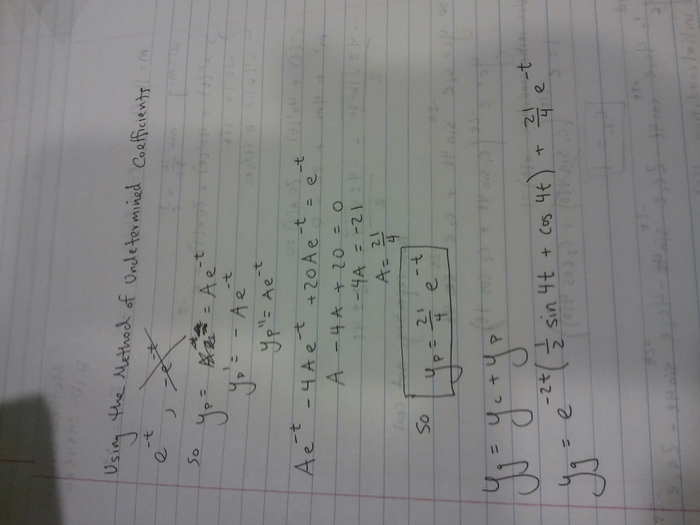 Using the Method of Undetermined Coefficients
e^-t, -e^-t
so yp = Ae^-t
yp' = -Ae^-t
yp'' = Ae^-t
Ae^-t - 4Ae^-t + 20Ae^-t = e^-t
A - 4A + 20 = 0
-4A = -21
A = 21/4
so yp = 21/4 e^-t
yg = yc + yp
yg = e^-2t(1/2 sin 4t + cos 4t) + 21/4 e^-t